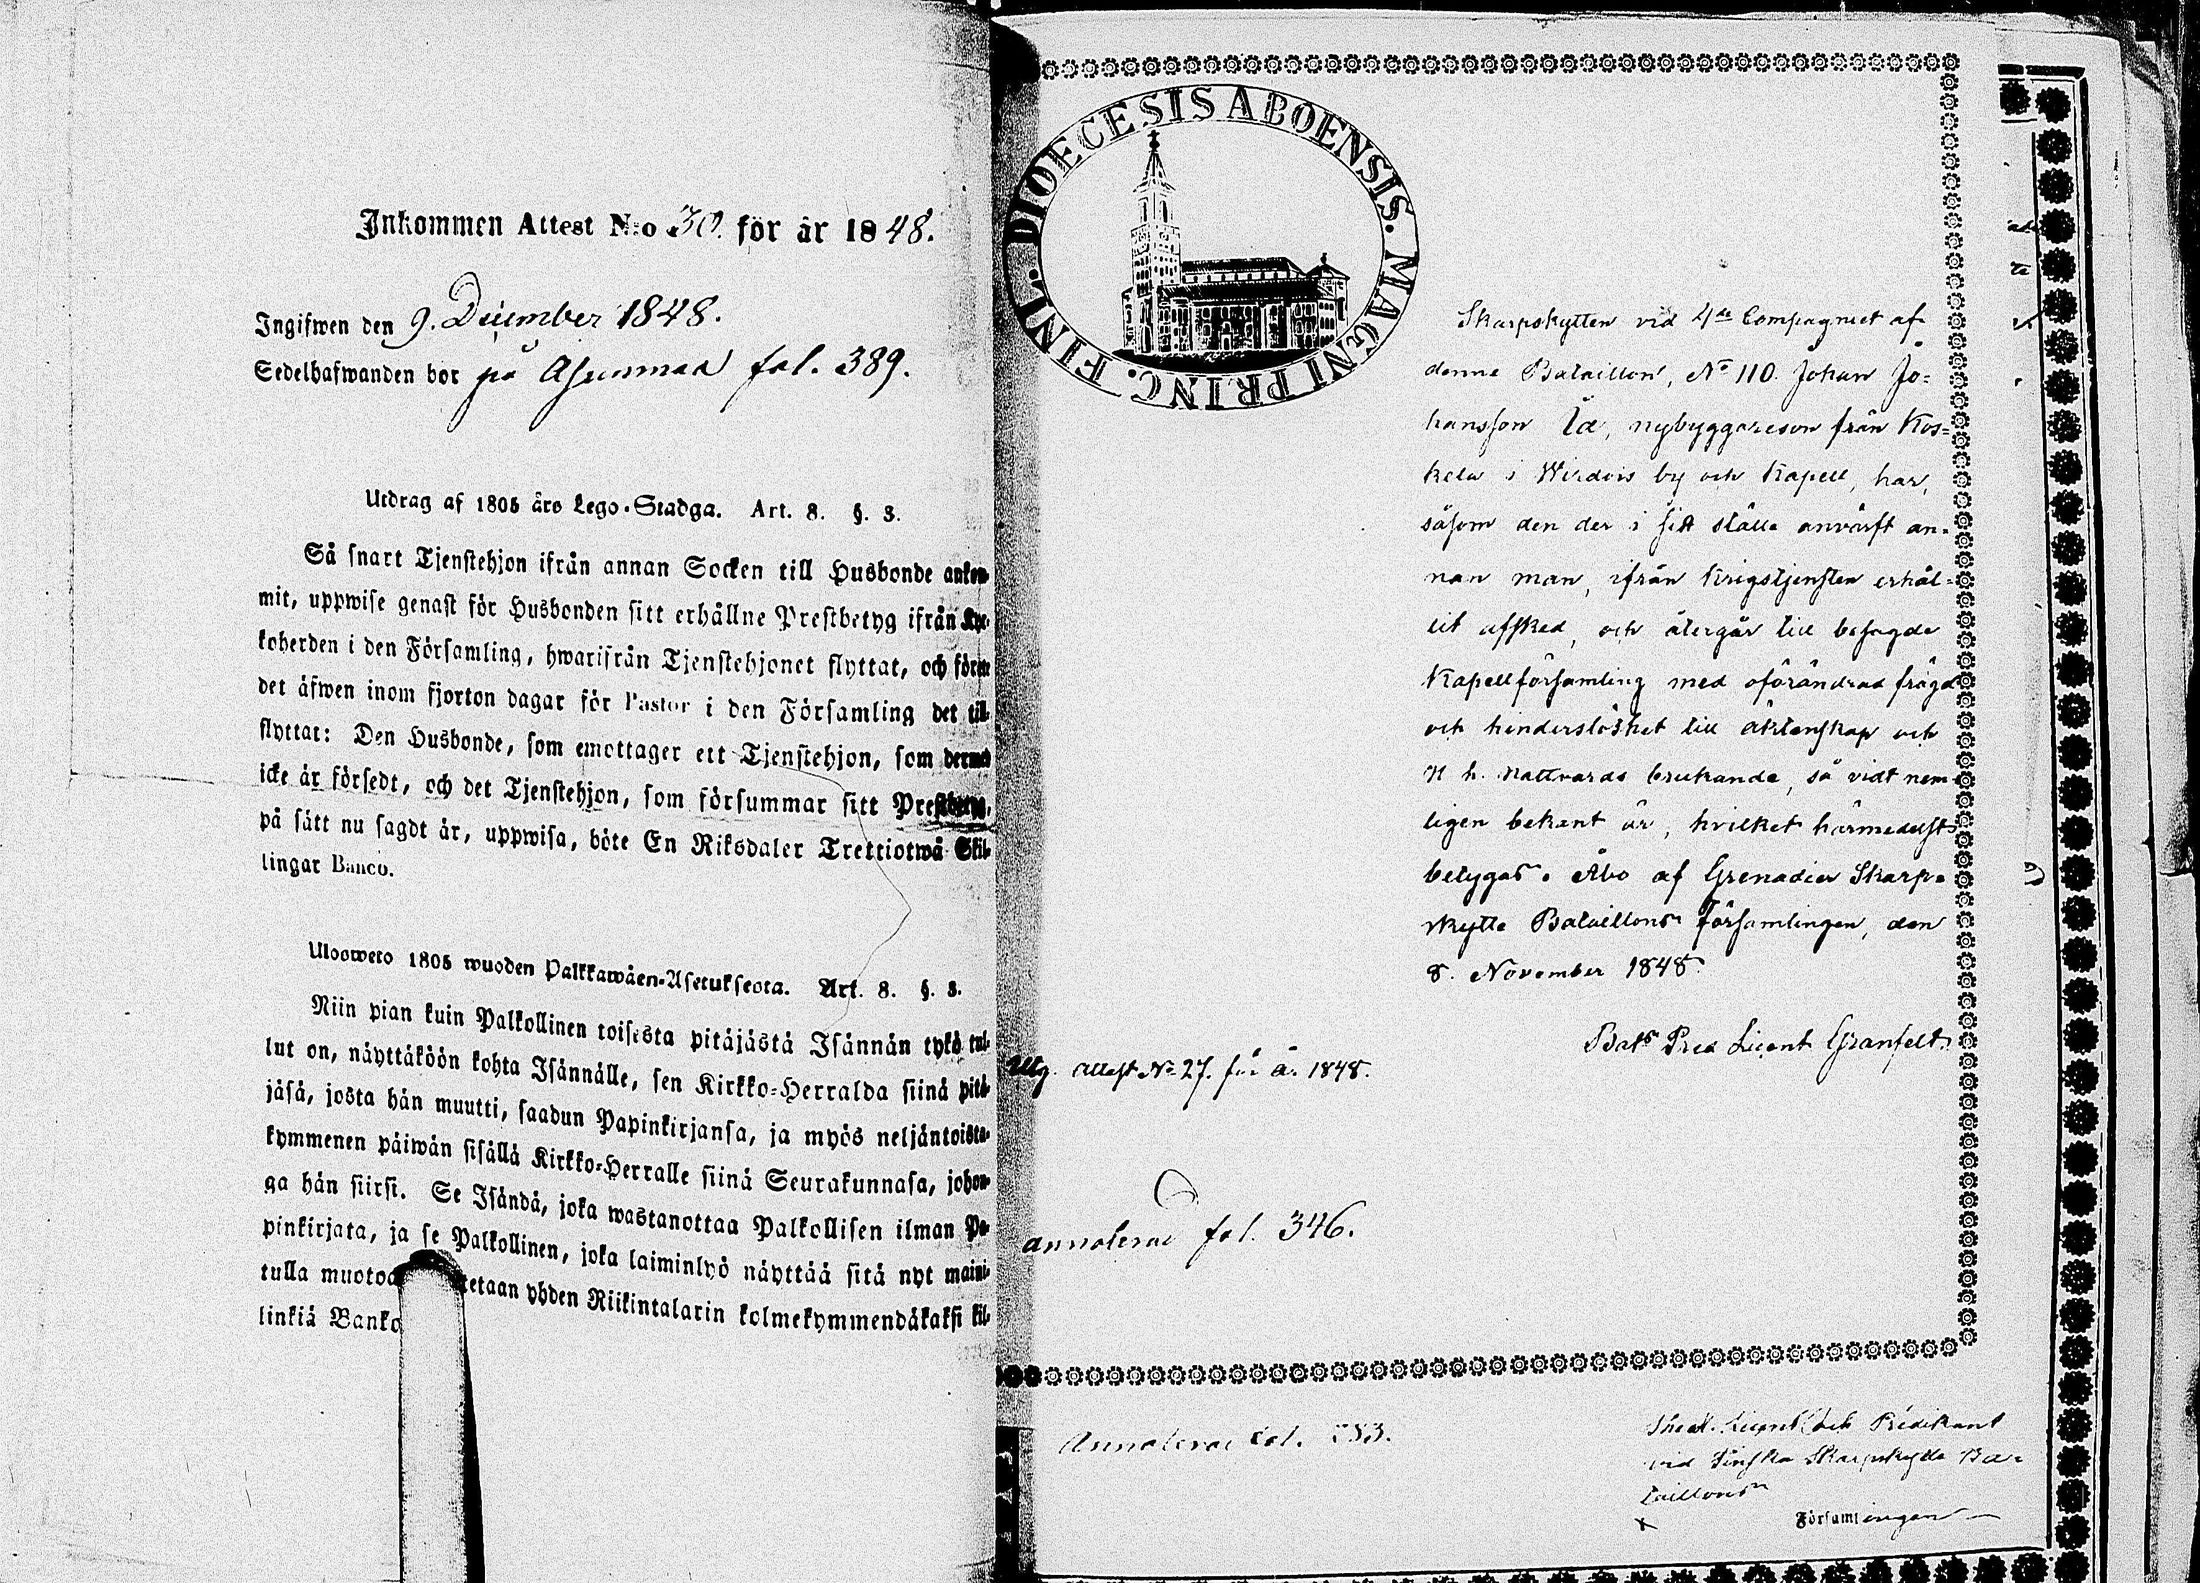 Inkommen Attest N:o 30. för år 1848.
Ingifwen den 9. December 1848.
Sedelhafwanden bor på Asunmaa fol. 389.
Utdrag af 1805 års Lego-Stadga. Art. 8. §. 3.
Så snart Tjenstehjon ifrån annan Socken till Husbonde ankom-
mit, uppwise genast för Husbonden sitt erhållne Prestbetyg ifrån Kyr-
koherden i den Församling, hwarifrån Tjenstehjonet flyttat, och förete
det äfwen inom fjorton dagar för Pastor i den Församling det till-
flyttat: Den Husbonde, som emottager ett Tjenstehjon, som dermed
icke är försedt, och det Tjenstehjon, som försummar sitt Prestbetyg,
på sätt nu sagdt är, uppwisa, böte En Riksdaler Trettiotwå Skil-
lingar Banco.
Ulosweto 1805 wuoden Palkkawäen-Asetuksesta. Art. 8. §. 3.
Niin pian kuin Palkollinen toisesta pitäjästä Isännän tykö tul-
lut on, näyttäköön kohta Isännälle, sen Kirkko-Herralda siinä pitä-
jäsä, josta hän muutti, saadun Papinkirjansa, ja myös neljäntoista-
kymmenen päiwän sisällä Kirkko-Herralle siinä Seurakunnasa, johon-
ga hän siirsi. Se Isändä, joka wastanottaa Palkollisen ilman Pa-
pinkirjata, ja se Palkollinen, joka laiminlyö näyttää sitä nyt maini-
tulla muotoa etetaan yhden Riikintalarin kolmekymmendäkaksi kil-
linkiä Banko
DIOECESIS ABOENSIS. MAGNI PRINC. FINL.
Skarpskytten vid 4de Compagniet af
denna Bataillon, No 110. Johan Jo=
hansson Id, nybyggareson från Kos=
kela i Wirdois by och Kapell, har,
såsom den der i sitt ställe anvärft an=
nan man, ifrån Krigstjensten erhål=
lit afsked, och återgår till besagde
Kapellförsamling med oförändrad frägd
och hinderslöshet till äktenskap och
H h. Nattvards brukande, så vidt nem=
ligen bekant är, hvilket härmedelst
betygas. Åbo af Grenadier Skarp=
skytte Bataillons Församlingen, den
8. November 1848.
Bats Pred Licent Granfelt.
Utg. attest No 27. för år 1848.
Annoterad fol. 346.
Annoterad fol.
Theol. Licent och Predikant
vid Finska Skarpskytte Ba=
taillons
Församlingen